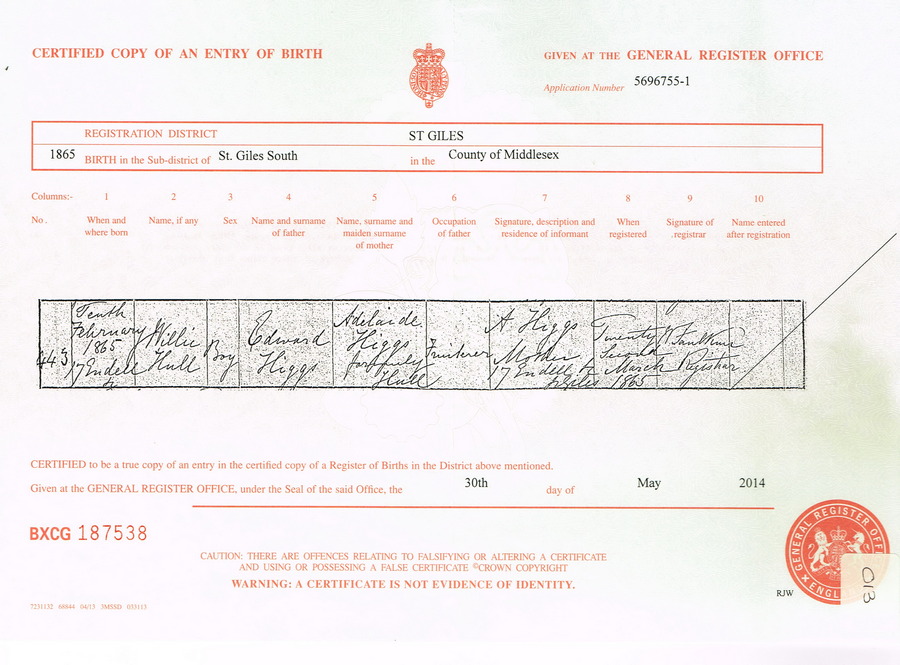 CERTIFIED COPY OF AN ENTRY OF BIRTH
GIVEN AT THE GENERAL REGISTER OFFICE
Application Number 5696755-1
REGISTRATION DISTRICT ST GILES
1865 BIRTH in the Sub-district of St. Giles South in the County of Middlesex
Columns:- 1 2 3 4 5 6 7 8 9 10
No. When and where born Name, if any Sex Name and surname of father Name, surname and maiden surname of mother Occupation of father Signature, description and residence of informant When registered Signature of registrar Name entered after registration
443
Tenth
February
1865
17 Endell
St
Willie
Hull
Boy
Edward
Higgs
Adelaide
Higgs
formerly
Hull
Fruiterer
A Higgs
Mother
17 Endell St
St Giles
Twenty
Second
March
1865
Faulkner
Registrar
CERTIFIED to be a true copy of an entry in the certified copy of a Register of Births in the District above mentioned.
Given at the GENERAL REGISTER OFFICE, under the Seal of the said Office, the 30th day of May 2014
BXCG 187538
CAUTION: THERE ARE OFFENCES RELATING TO FALSIFYING OR ALTERING A CERTIFICATE
AND USING OR POSSESSING A FALSE CERTIFICATE ©CROWN COPYRIGHT
WARNING: A CERTIFICATE IS NOT EVIDENCE OF IDENTITY.
GENERAL REGISTER OFF
ENGL
013
RJW
7231132 68844 04/13 3MSSD 033113